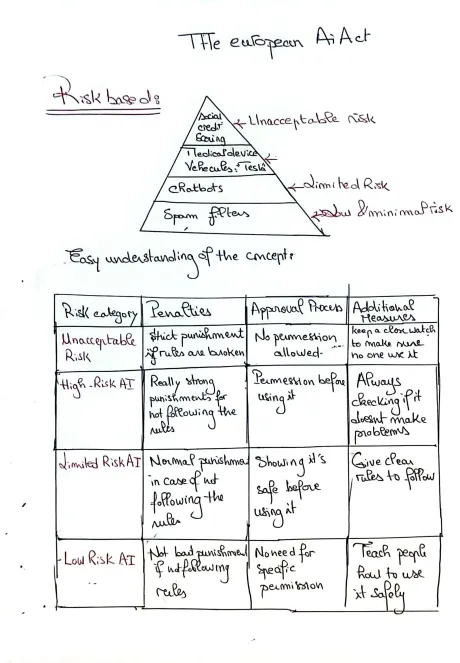 The european Ai Act
Risk based:
social
credit
Scoring
← Unacceptable risk
Medical device
Vehecules: Tesla
←
chatbots
← Limited Risk
Spam filters
← Low & minimal risk
Easy understanding of the concept:
Risk category
Penalties
Approval Process
Additional
Measures
Unacceptable
Risk
Strict punishment
if rules are broken
No permession
allowed.
keep a close watch
to make sure
no one use it
High-Risk AI
Really strong
punishments for
not following the
rules
Permession before
using it
Always
checking if it
doesnt make
problems
Limited Risk AI
Normal punishment
in case of not
following the
rules
Showing it's
safe before
using it
Give clear
rules to follow
Low Risk AI
Not bad punishment
if not following
rules
No need for
specific
permission
Teach people
how to use
it safely